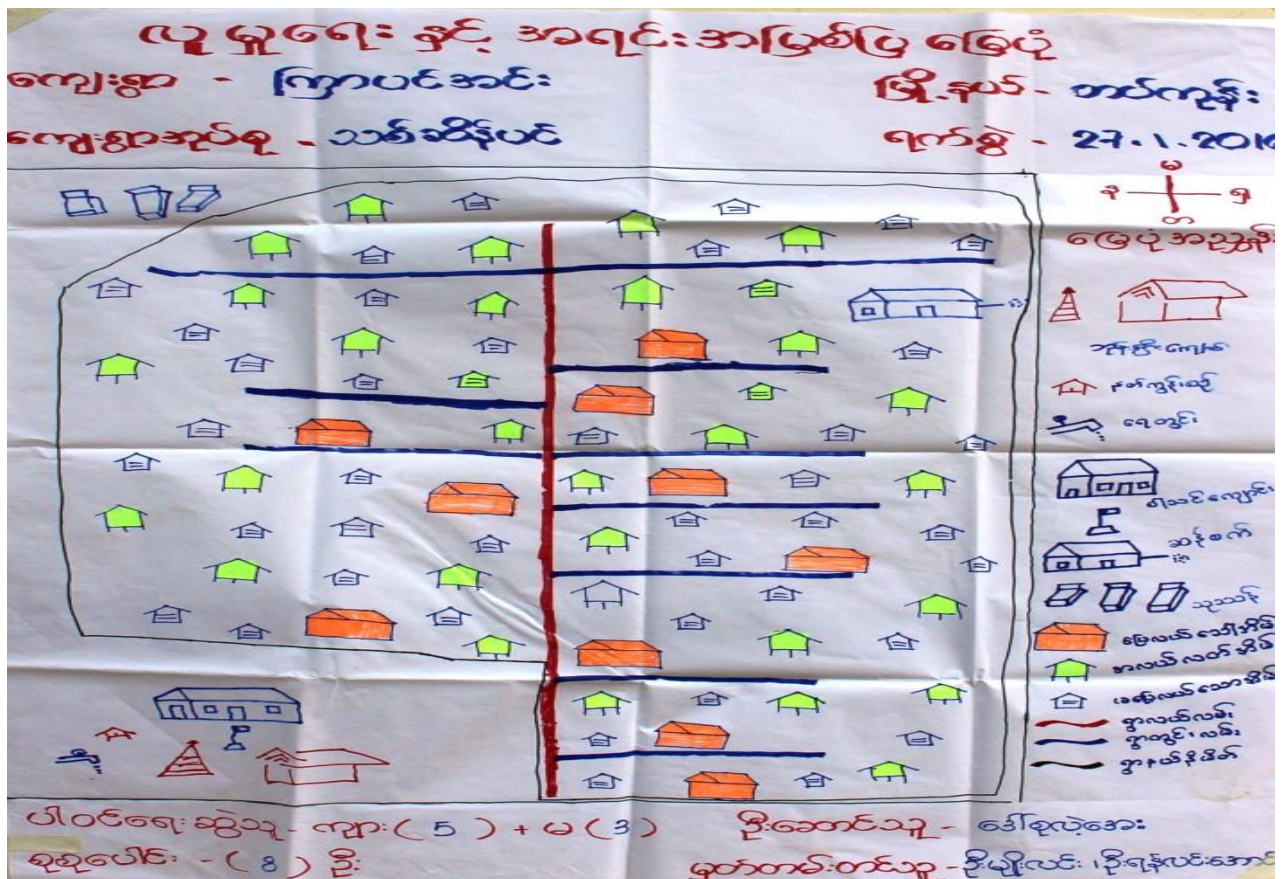 လူမှုရေး နှင့် အရင်းအမြစ်ပြ မြေပုံ
ကျေးရွာ - ကြာပင်အင်း
မြို့နယ် - တပ်ကုန်း
ကျေးရွာအုပ်စု - သစ်ဆိမ့်ပင်
ရက်စွဲ - 27.1.201
မ
န
ရှ
တ
မြေပုံအညွှန်း
ဘုန်းကြီးကျောင်း
နတ်ကွန်းစဉ်
ရေတွင်း
စာသင်ကျောင်း
ဆန်စက်
သုဿာန်
မြေလယ်သောအိမ်
အလယ်လတ်အိမ်
မြေမဲ့လယ်သောအိမ်
ရွာလယ်လမ်း
ရွာတွင်းလမ်း
ရွာနယ်နိမိတ်
ပါဝင်ရေးဆွဲသူ - ကျား ( 5 ) + မ ( 3 )
ဦးဆောင်သူ - ဒေါ်စုလဲ့အေး
စုစုပေါင်း - ( 8 ) ဦး
မှတ်တမ်းတင်သူ - ဦးမျိုးလင်း ၊ ဦးရန်လင်းအောင်